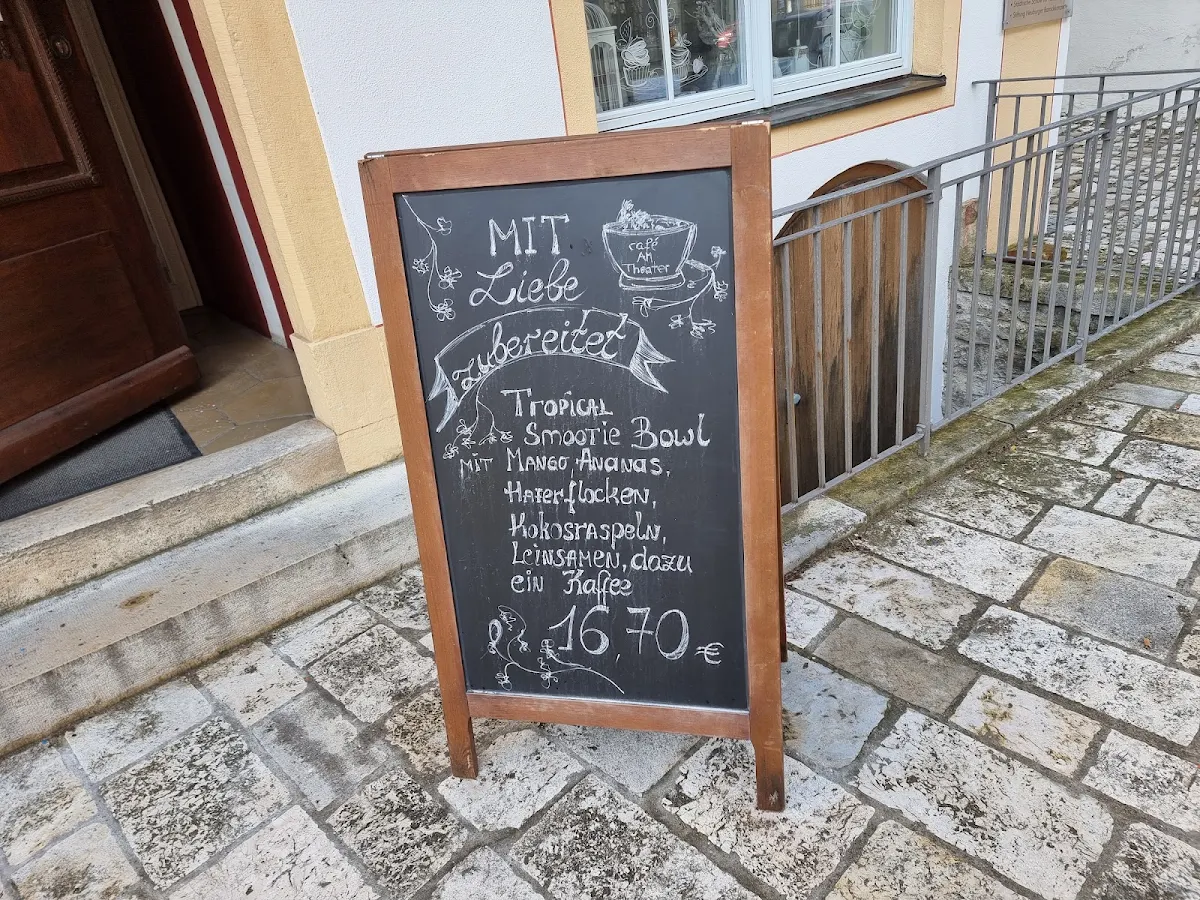 MIT
Liebe
zubereitet
café
Am
Theater
Tropical
Smootie Bowl
MIT Mango, Ananas,
Haferflocken,
Kokosraspeln,
Leinsamen, dazu
ein Kaffee
16,70 €